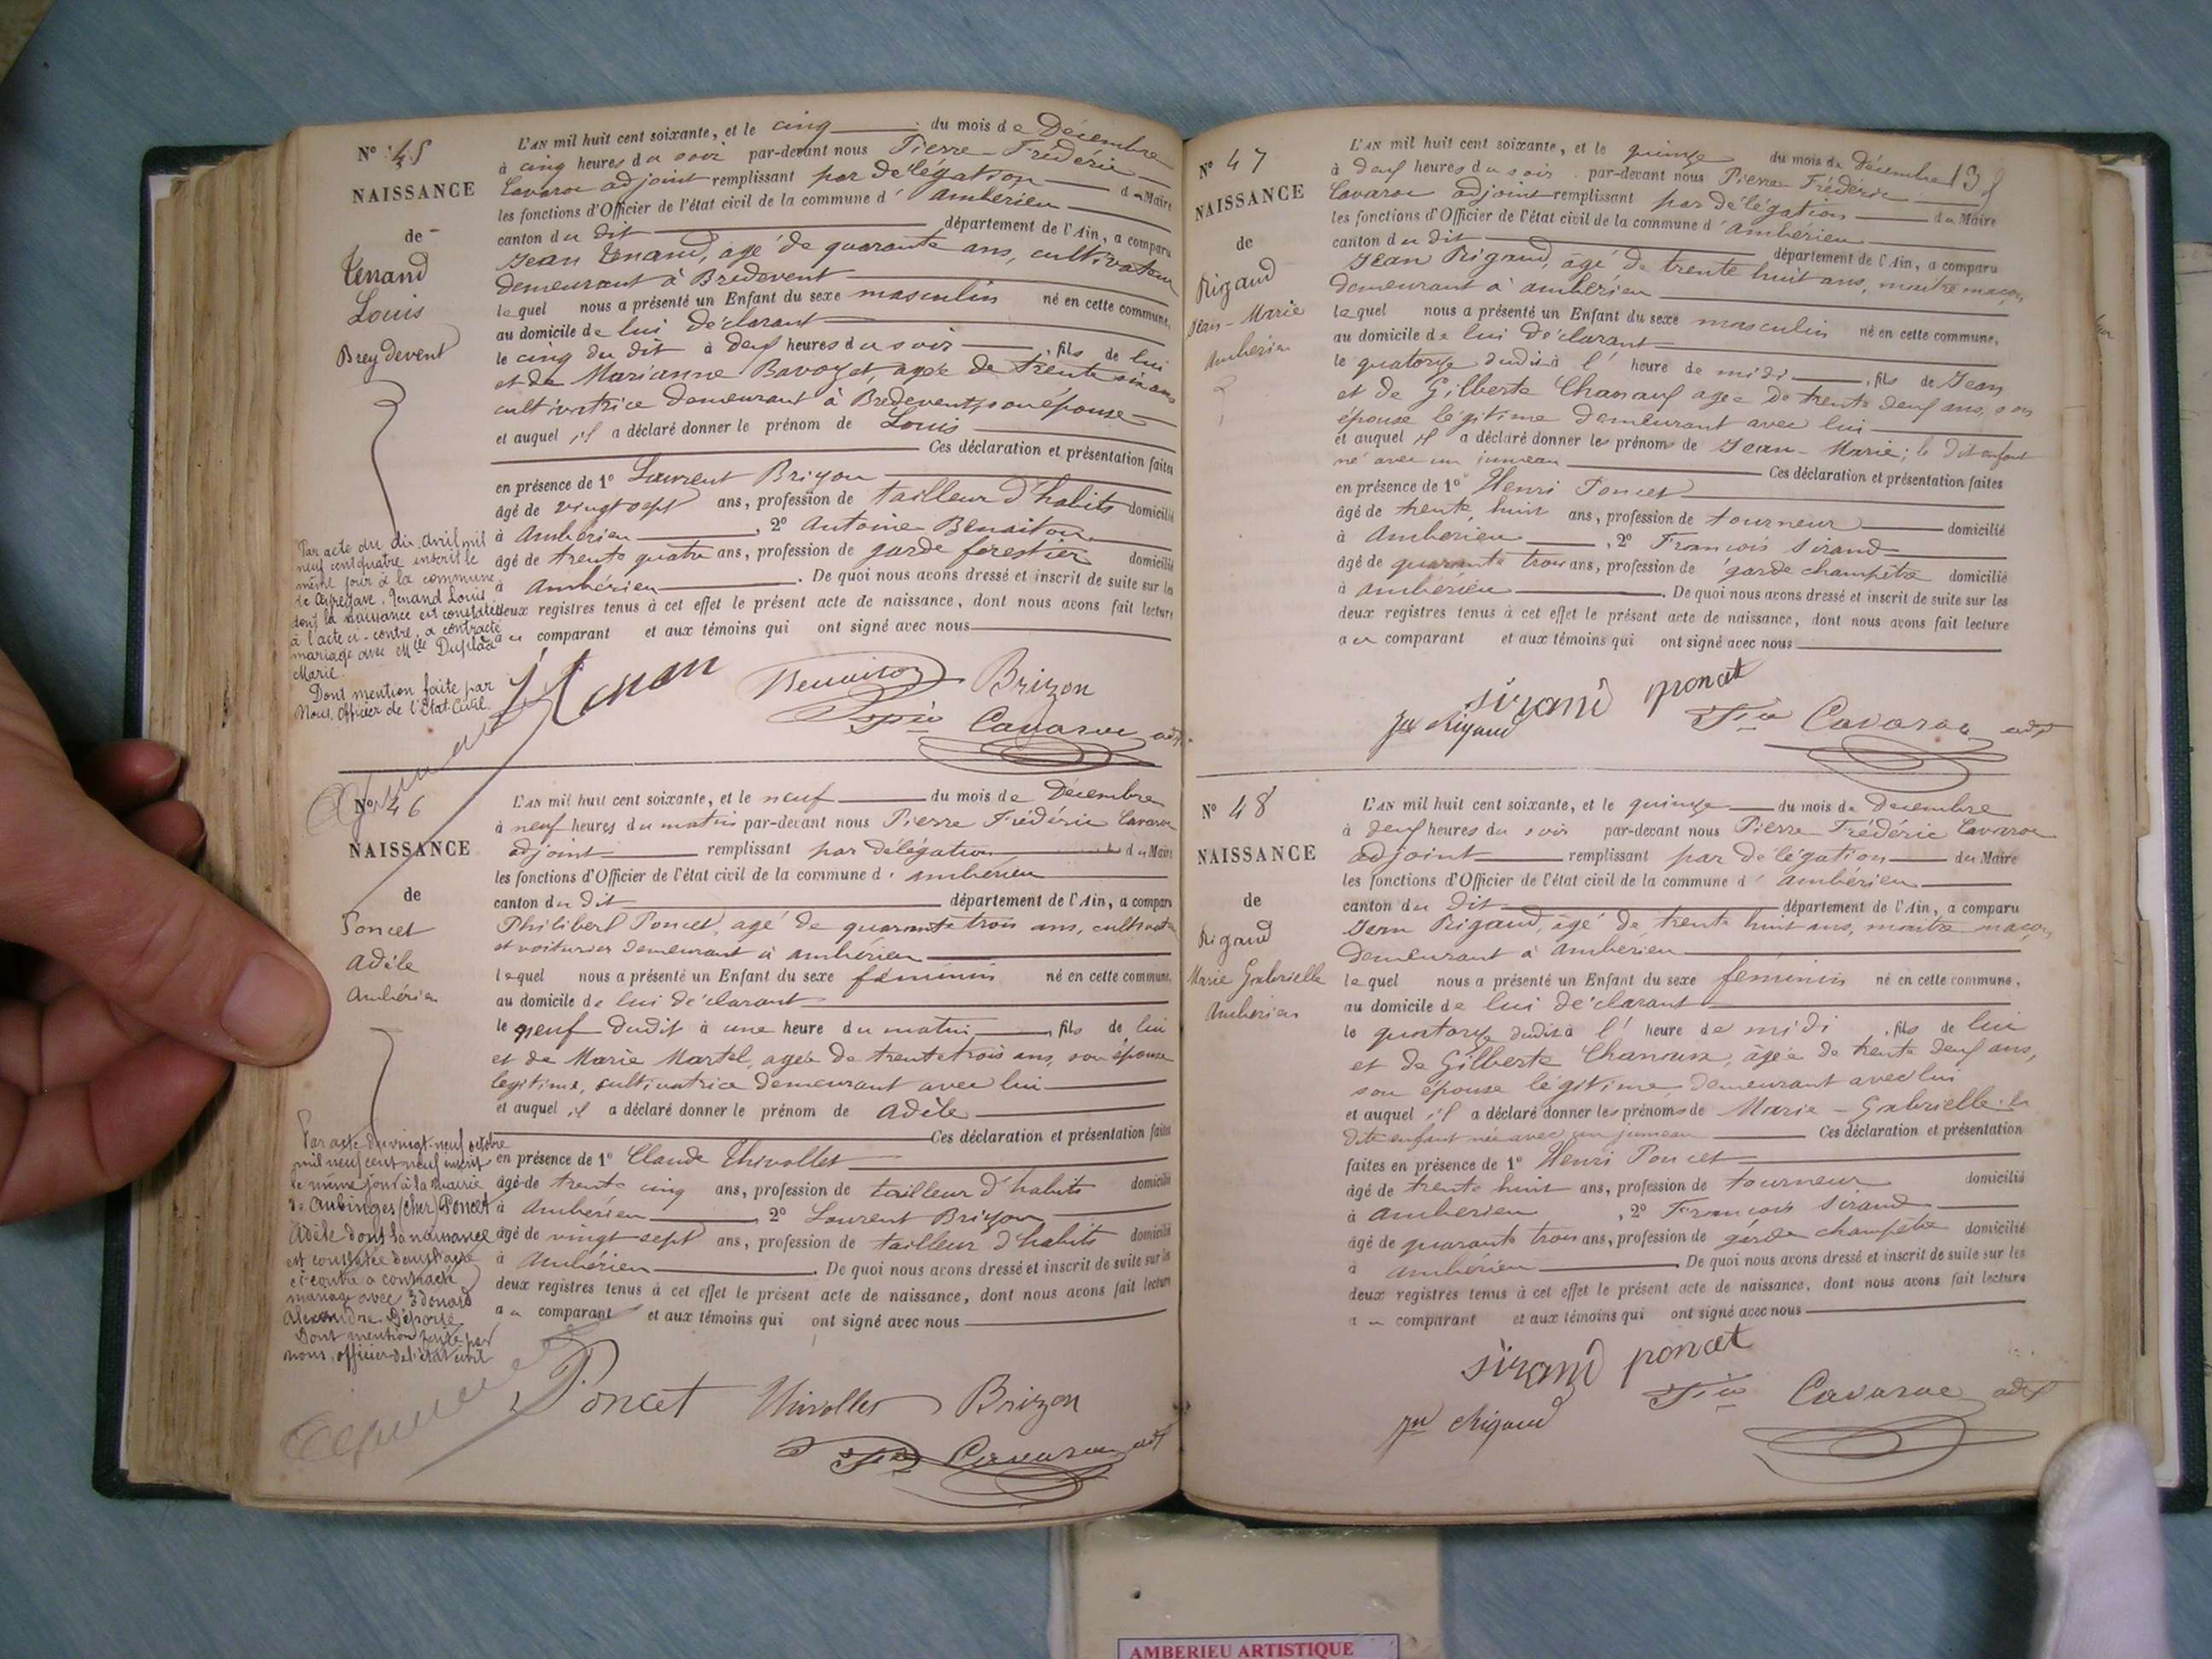 Nº 45
NAISSANCE
de
Tenand
Louis
Breydevent
L'AN mil huit cent soixante, et le cinq du mois de Décembre
à cinq heures du soir par-devant nous Pierre-Fréderic
Cavaroc adjoint remplissant par délégation du Maire
les fonctions d'Officier de l'état civil de la commune d'ambérieu
canton du dit département de l'Ain, a comparu
Jean Tenand, agé de quarante ans, cultivateur
demeurant à Bredevent
lequel nous a présenté un Enfant du sexe masculin né en cette commune,
au domicile de lui déclarant
le cinq du dit à deux heures du soir, fils de lui
et de Marianne Bavozet, agée de trente six ans
cultivatrice demeurant à Bredevent, son épouse
et auquel il a déclaré donner le prénom de Louis
Ces déclaration et présentation faites
en présence de 1º Laurent Brizon
âgé de vingt sept ans, profession de tailleur d'habits domicilié
à Ambérieu, 2º Antoine Benaiton
âgé de trente quatre ans, profession de garde forestier domicilié
à Ambérieu. De quoi nous avons dressé et inscrit de suite sur les
deux registres tenus à cet effet le présent acte de naissance, dont nous avons fait lecture
au comparant et aux témoins qui ont signé avec nous
Par acte du dix avril mil
neuf cent quatre inscrit le
même jour à la commune
de, Tenand Louis
dont la naissance est constatée
à l'acte ci-contre, a contracté
mariage avec Mlle
Marie.
Dont mention faite par
Nous, Officier de l'Etat-Civil.
Brizon
Cavaroc adjt
Nº 46
NAISSANCE
de
Poncet
Adèle
Ambérieu
L'AN mil huit cent soixante, et le neuf du mois de Décembre
à neuf heures du matin par-devant nous Pierre Frédéric Cavaroc
adjoint remplissant par délégation du Maire
les fonctions d'Officier de l'état civil de la commune d'ambérieu
canton du dit département de l'Ain, a comparu
Philibert Poncet, agé de quarante trois ans, cultivateur
et voiturier demeurant à ambérieu
lequel nous a présenté un Enfant du sexe féminin né en cette commune,
au domicile de lui déclarant
le neuf dudit à une heure du matin, fils de lui
et de Marie Martel, agée de trente trois ans, son épouse
legitime, cultivatrice demeurant avec lui
et auquel il a déclaré donner le prénom de Adèle
Ces déclaration et présentation faites
en présence de 1º Claude Thivollet
âgé de trente cinq ans, profession de tailleur d'habits domicilié
à Ambérieu, 2º Laurent Brizon
âgé de vingt sept ans, profession de tailleur d'habits domicilié
à Ambérieu. De quoi nous avons dressé et inscrit de suite sur les
deux registres tenus à cet effet le présent acte de naissance, dont nous avons fait lecture
au comparant et aux témoins qui ont signé avec nous
Par acte du vingt-neuf octobre
mil neuf cent neuf inscrit
le même jour à la mairie
de Aubinges (Cher) Poncet
Adèle dont la naissance
est constatée dans l'acte
ci-contre a contracté
mariage avec Edouard
Alexandre Déporte
Dont mention faite par
nous, officier de l'état civil
Poncet Thivollet Brizon
Cavaroc adjt
Nº 47
NAISSANCE
de
Rigaud
Jean-Marie
Ambérieu
L'AN mil huit cent soixante, et le quinze du mois de Décembre
à deux heures du soir par-devant nous Pierre-Fréderic
Cavaroc adjoint remplissant par délégation du Maire
les fonctions d'Officier de l'état civil de la commune d'ambérieu
canton du dit département de l'Ain, a comparu
Jean Rigaud, âgé de trente huit ans, maître maçon,
demeurant à ambérieu
lequel nous a présenté un Enfant du sexe masculin né en cette commune,
au domicile de lui déclarant
le quatorze dudit à l'heure de midi, fils de Jean
et de Gilberte Chanaux agée de trente deux ans, son
épouse légitime demeurant avec lui
et auquel il a déclaré donner les prénoms de Jean-Marie; le dit enfant
né avec un jumeau Ces déclaration et présentation faites
en présence de 1º Henri Poncet
âgé de trente huit ans, profession de tourneur domicilié
à Ambérieu, 2º François Sirand
âgé de quarante trois ans, profession de garde champêtre domicilié
à ambérieu. De quoi nous avons dressé et inscrit de suite sur les
deux registres tenus à cet effet le présent acte de naissance, dont nous avons fait lecture
au comparant et aux témoins qui ont signé avec nous
sirand poncet
Rigaud Cavaroc adjt
Nº 48
NAISSANCE
de
Rigaud
Marie Gabrielle
Ambérieu
L'AN mil huit cent soixante, et le quinze du mois de Decembre
à deux heures du soir par-devant nous Pierre Frédéric Cavaroc
adjoint remplissant par délégation du Maire
les fonctions d'Officier de l'état civil de la commune d'ambérieu
canton du dit département de l'Ain, a comparu
Jean Rigaud, âgé de trente huit ans, maître maçon,
demeurant à ambérieu
lequel nous a présenté un Enfant du sexe féminin né en cette commune,
au domicile de lui déclarant
le quatorze dudit à l'heure de midi, fils de lui
et de Gilberte Chanaux, âgée de trente deux ans,
son épouse légitime demeurant avec lui
et auquel il a déclaré donner les prénoms de Marie-Gabrielle; la
dite enfant née avec un jumeau Ces déclaration et présentation
faites en présence de 1º Henri Poncet
âgé de trente huit ans, profession de tourneur domicilié
à Ambérieu, 2º François Sirand
âgé de quarante trois ans, profession de garde champêtre domicilié
à ambérieu. De quoi nous avons dressé et inscrit de suite sur les
deux registres tenus à cet effet le présent acte de naissance, dont nous avons fait lecture
au comparant et aux témoins qui ont signé avec nous
sirand poncet
Rigaud Cavaroc adjt
AMBERIEU ARTISTIQUE